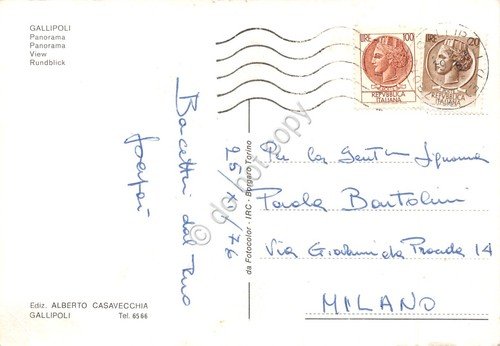 GALLIPOLI
Panorama
Panorama
View
Rundblick
LIRE 100
REPVBBLICA
ITALIANA
LIRE 20
REPVBBLICA
ITALIANA
Bacetti dal Tuo
25/XI/76
da Fotocolor - IRC - Borgaro Torino
do not copy
Per la Gent.ma Signorina
Paola Bartolini
Via Giovanni da Procida 14
MILANO
Ediz. ALBERTO CASAVECCHIA
GALLIPOLI Tel. 6566